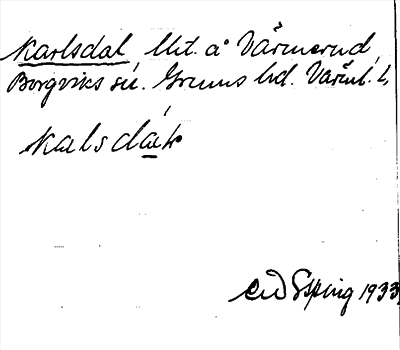 Karlsdal lht. å Värmerud,
Borgviks sn. Grums hd. Värml. l.
kalsdák
Esping 1933.